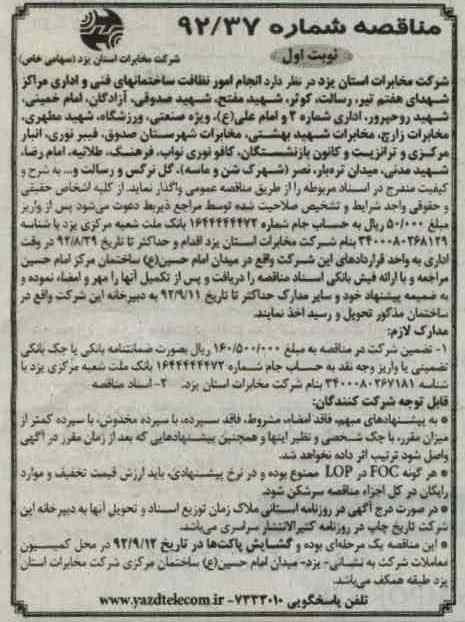 مناقصه شماره ۹۲/۳۷
نوبت اول
شرکت مخابرات استان یزد (سهامی خاص)
شرکت مخابرات استان یزد در نظر دارد انجام امور نظافت ساختمانهای فنی و اداری مراکز
شهدای هفتم تیر، رسالت، کوثر، شهید مفتح، شهید صدوقی، آزادگان، امام خمینی،
شهید روحپرور، اداری شماره ۲ و امام علی(ع)، ویژه صنعتی، ورزشگاه، شهید مطهری،
مخابرات زارچ، مخابرات شهید بهشتی، مخابرات شهرستان صدوق، فیبر نوری، انبار
مرکزی و ترانزیت و کانون بازنشستگان، کافو نوری نواب، فرهنگ، طلائیه، امام رضا،
شهید مدنی، میدان تره‌بار، نصر (شهرک شن و ماسه)، گل نرگس و رسالت و... به شرح و
کیفیت مندرج در اسناد مربوطه را از طریق مناقصه عمومی واگذار نماید. از کلیه اشخاص حقیقی
و حقوقی واجد شرایط و تشخیص صلاحیت شده توسط مراجع ذیربط دعوت می‌شود پس از واریز
مبلغ ۵۰/۰۰۰ ریال به حساب جام شماره ۱۶۴۴۴۴۴۴۷۲ بانک ملت شعبه مرکزی یزد با شناسه
۳۴۰۰۰۸۰۲۶۸۱۲۹ بنام شرکت مخابرات استان یزد اقدام و حداکثر تا تاریخ ۹۲/۸/۲۹ در وقت
اداری به واحد قراردادهای این شرکت واقع در میدان امام حسین(ع) ساختمان مرکز امام حسین
مراجعه و با ارائه فیش بانکی اسناد مناقصه را دریافت و پس از تکمیل آنها را مهر و امضاء نموده و
به ضمیمه پیشنهاد خود و سایر مدارک حداکثر تا تاریخ ۹۲/۹/۱۱ به دبیرخانه این شرکت واقع در
ساختمان مذکور تحویل و رسید اخذ نمایند.
مدارک لازم:
۱- تضمین شرکت در مناقصه به مبلغ ۱۶۰/۵۰۰/۰۰۰ ریال بصورت ضمانتنامه بانکی یا چک بانکی
تضمینی یا واریز وجه نقد به حساب جام شماره ۱۶۴۴۴۴۴۴۷۲ بانک ملت شعبه مرکزی یزد با
شناسه ۳۴۰۰۰۸۰۲۶۷۱۸۱ بنام شرکت مخابرات استان یزد. ۲- اسناد مناقصه
قابل توجه شرکت کنندگان:
* به پیشنهادهای مبهم، فاقد امضاء، مشروط، فاقد سپرده، با سپرده مخدوش، با سپرده کمتر از
میزان مقرر، با چک شخصی و نظیر اینها و همچنین پیشنهادهایی که بعد از زمان مقرر در آگهی
واصل شود ترتیب اثر داده نخواهد شد.
* هر گونه FOC در LOP ممنوع بوده و در نرخ پیشنهادی، باید ارزش قیمت تخفیف و موارد
رایگان در کل اجزاء مناقصه سرشکن شود.
* در صورت درج آگهی در روزنامه استانی ملاک زمان توزیع اسناد و تحویل آنها به دبیرخانه این
شرکت تاریخ چاپ در روزنامه کثیرالانتشار سراسری می‌باشد.
* این مناقصه یک مرحله‌ای بوده و گشایش پاکت‌ها در تاریخ ۹۲/۹/۱۲ در محل کمیسیون
معاملات شرکت به نشانی- یزد- میدان امام حسین(ع) ساختمان مرکزی شرکت مخابرات استان
یزد طبقه همکف می‌باشد.
تلفن پاسخگویی ۷۲۳۳۰۱۰- www.yazdtelecom.ir